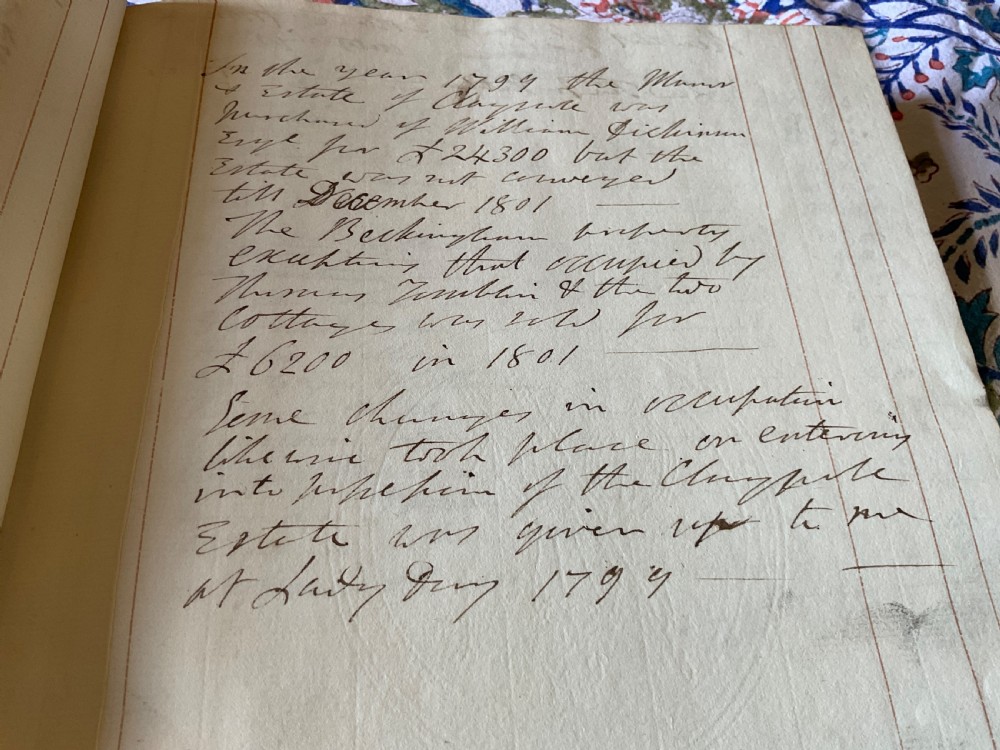 In the year 1799 the Manor
& Estate of Claypole was
purchased of William Dickinson
Esqr for £24300 but the
Estate was not conveyed
till December 1801
The Beckingham property
excepting that occupied by
Thomas Tomblin & the two
Cottages was sold for
£6200 in 1801
Some changes in occupation
likewise took place on entering
into possession of the Claypole
Estate was given up to me
at Lady Day 1799